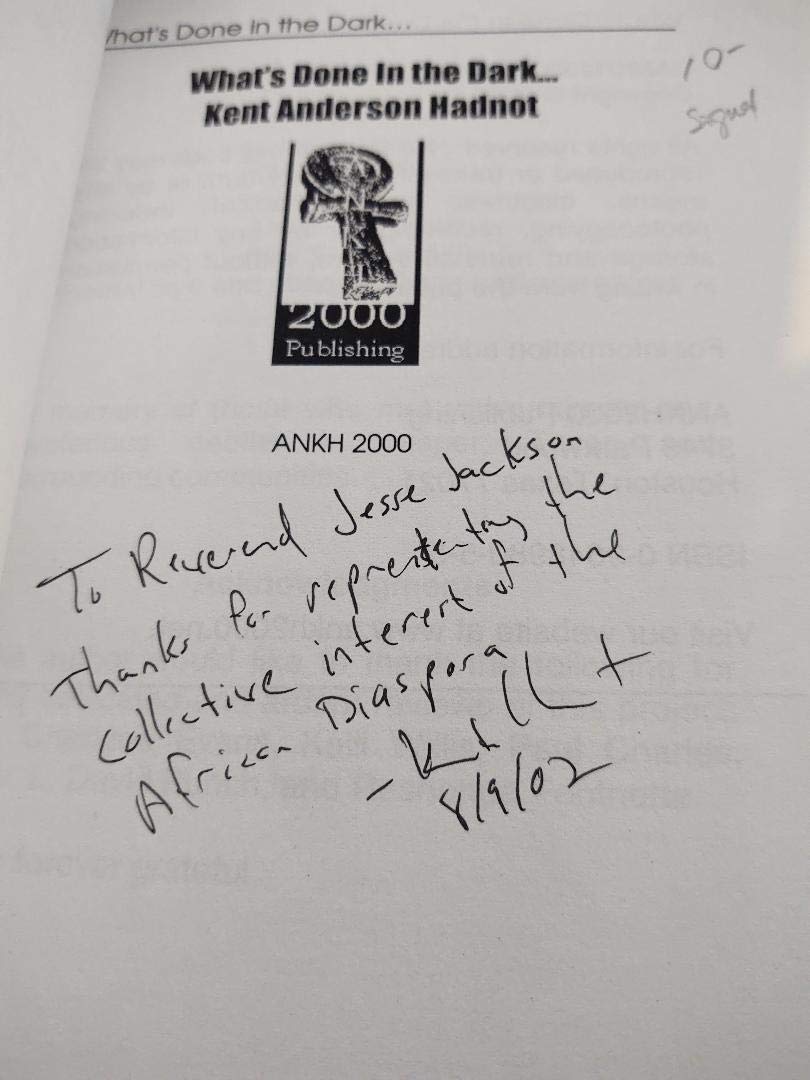 What's Done In the Dark...
10-
Signed
What's Done In the Dark...
Kent Anderson Hadnot
ANKH
2000
Publishing
ANKH 2000
To Reverend Jesse Jackson
Thanks for representing the
collective interest of the
African Diaspora
8/9/02